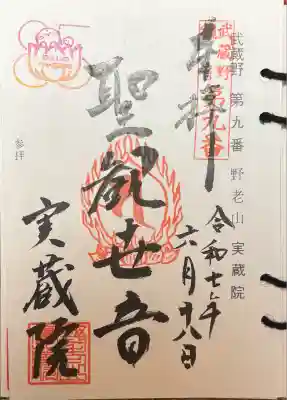 武蔵野 第九番 野老山 実蔵院
武蔵野
第九番
奉拝
令和七年
六月十八日
聖観世音
参拝
実蔵院